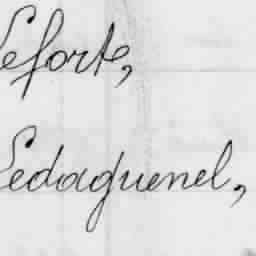 Leforte,
Ledaguenel,